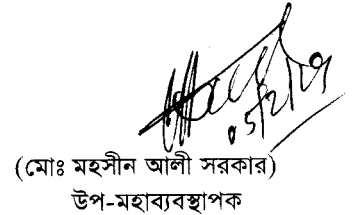 (মোঃ মহসীন আলী সরকার)
উপ-মহাব্যবস্থাপক